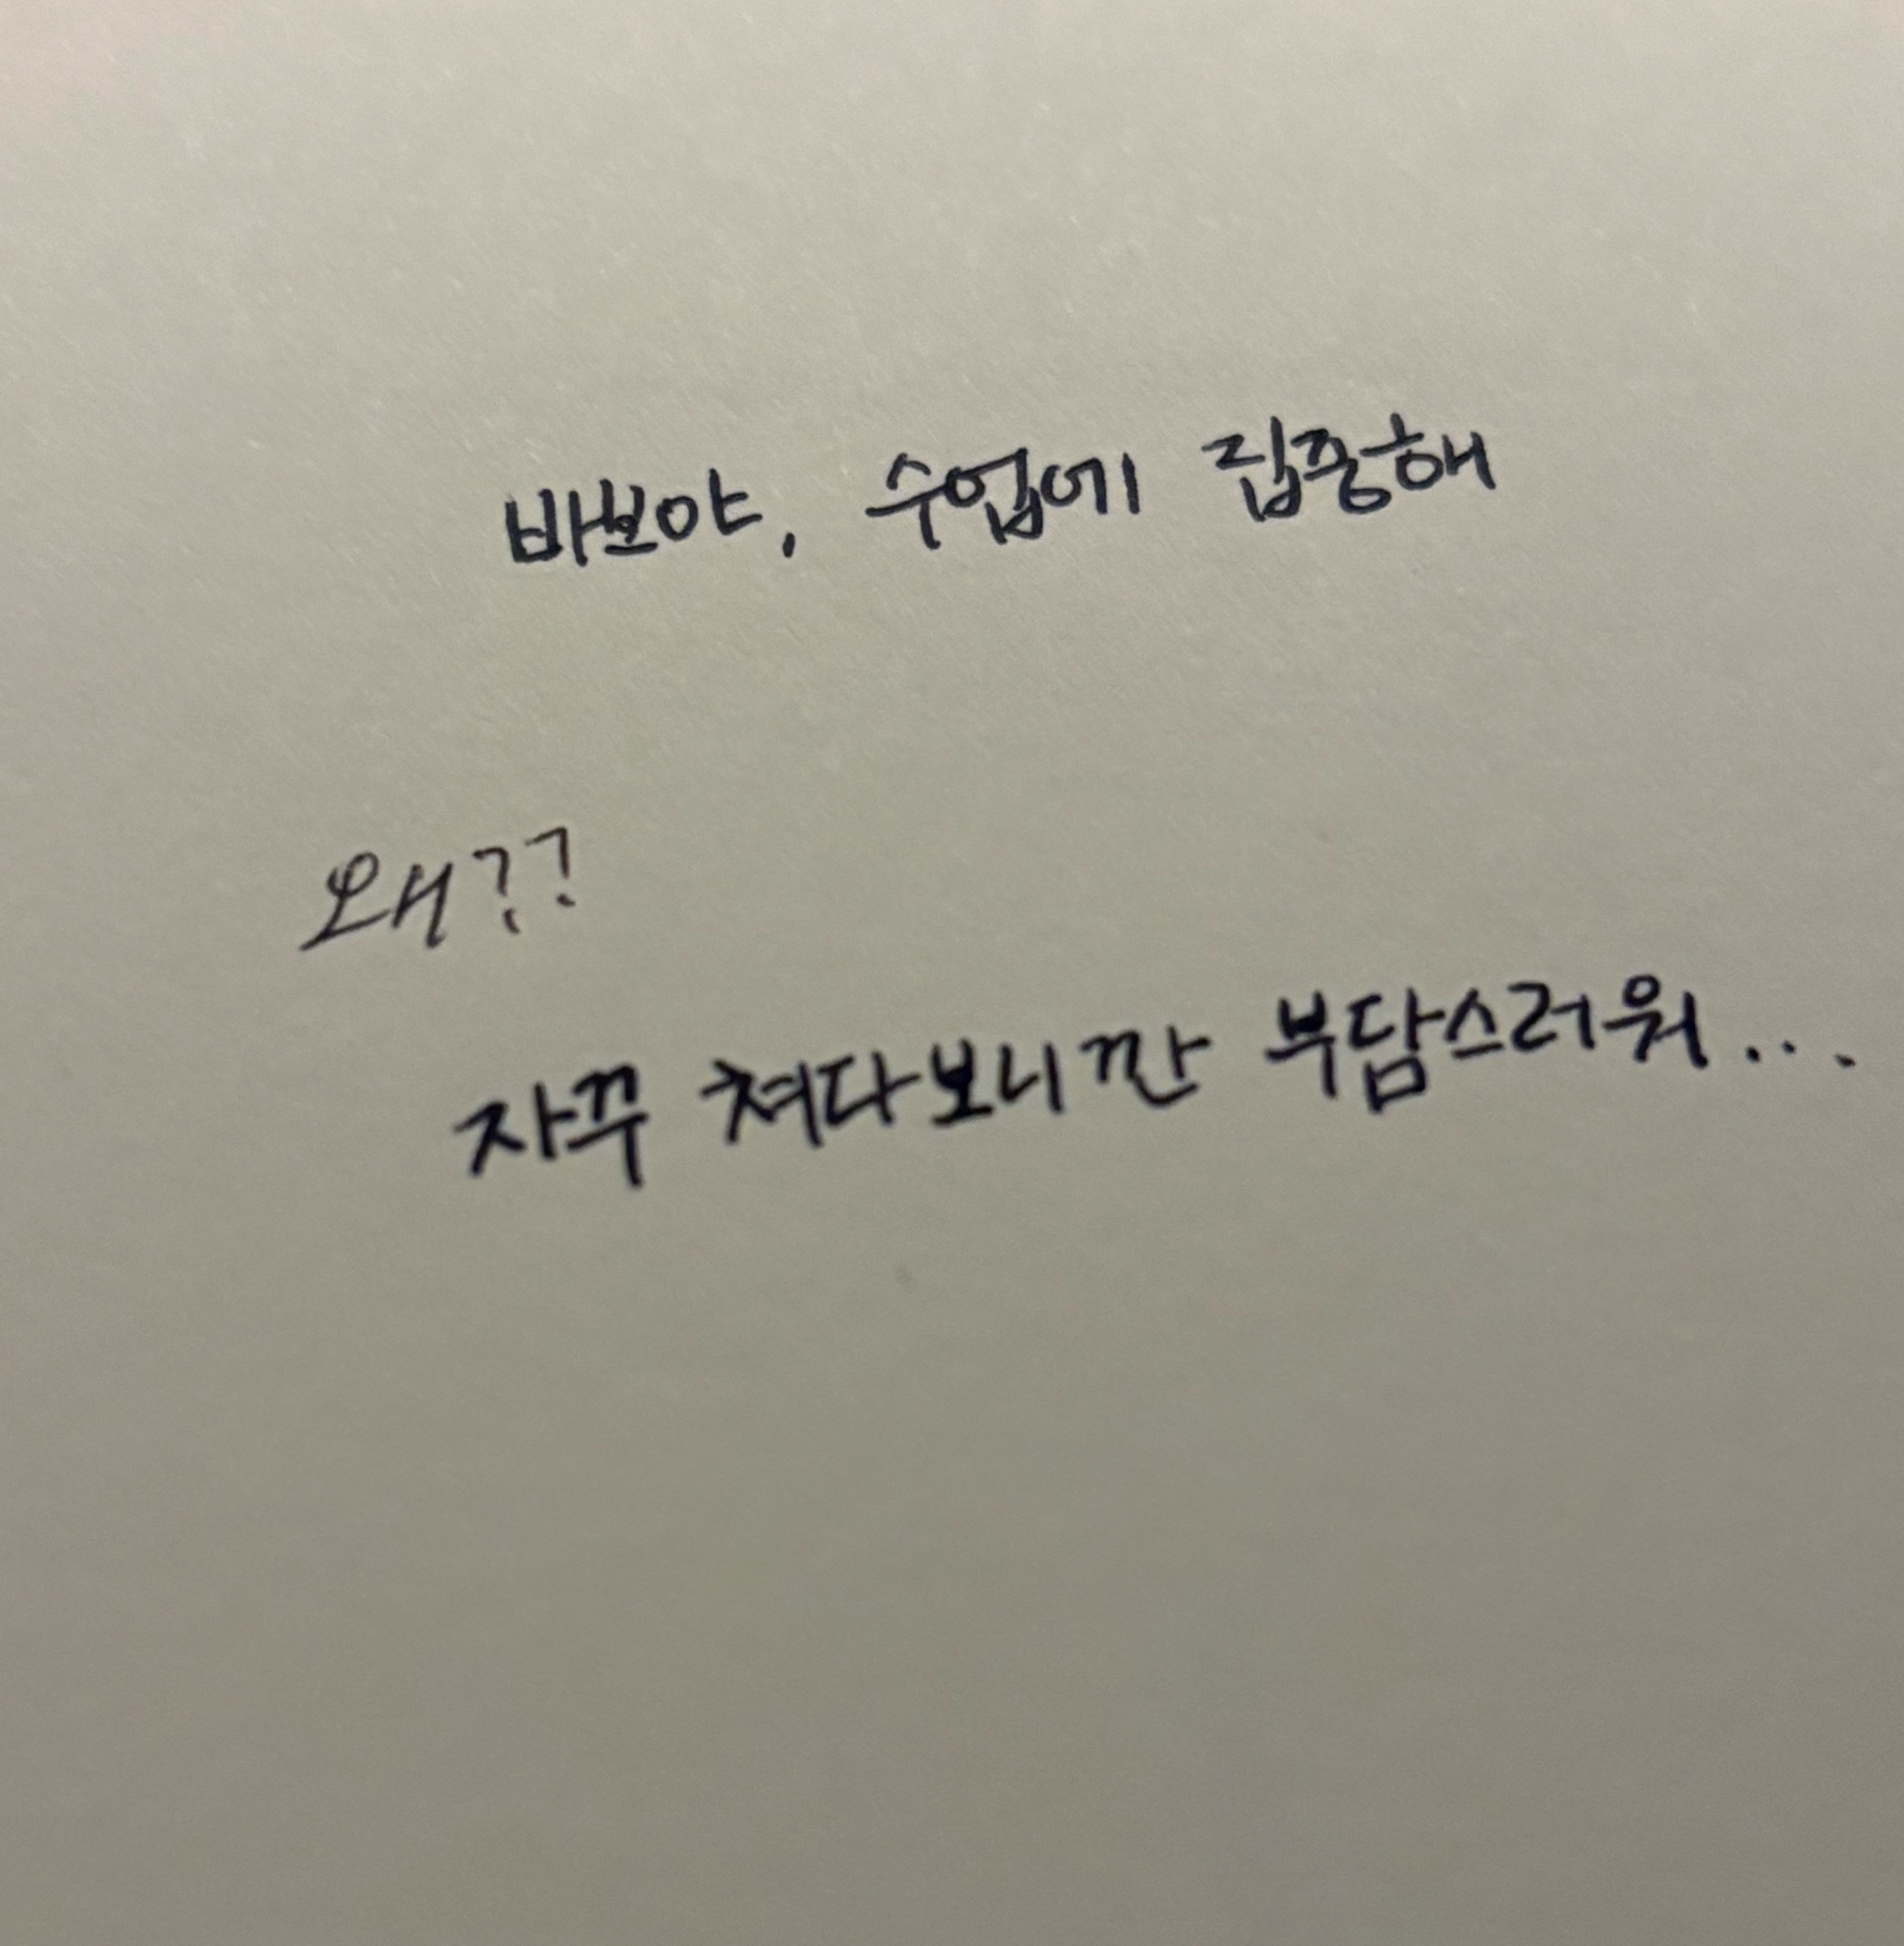 바보야, 수업에 집중해
왜??
자꾸 쳐다보니깐 부담스러워...